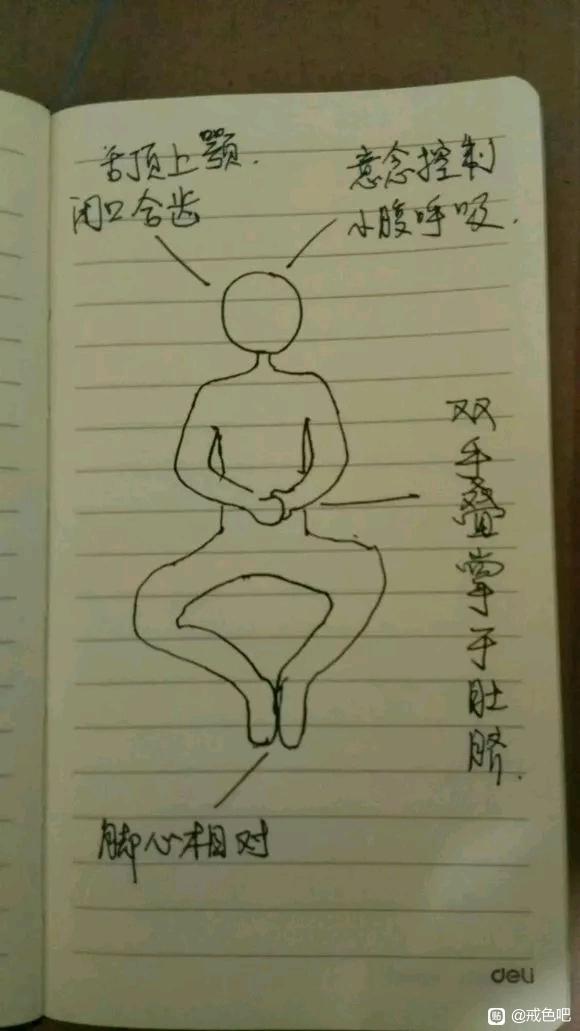 舌顶上颚.
闭口合齿
意念控制
小腹呼吸.
双手叠掌于肚脐.
脚心相对
deli
贴 @戒色吧